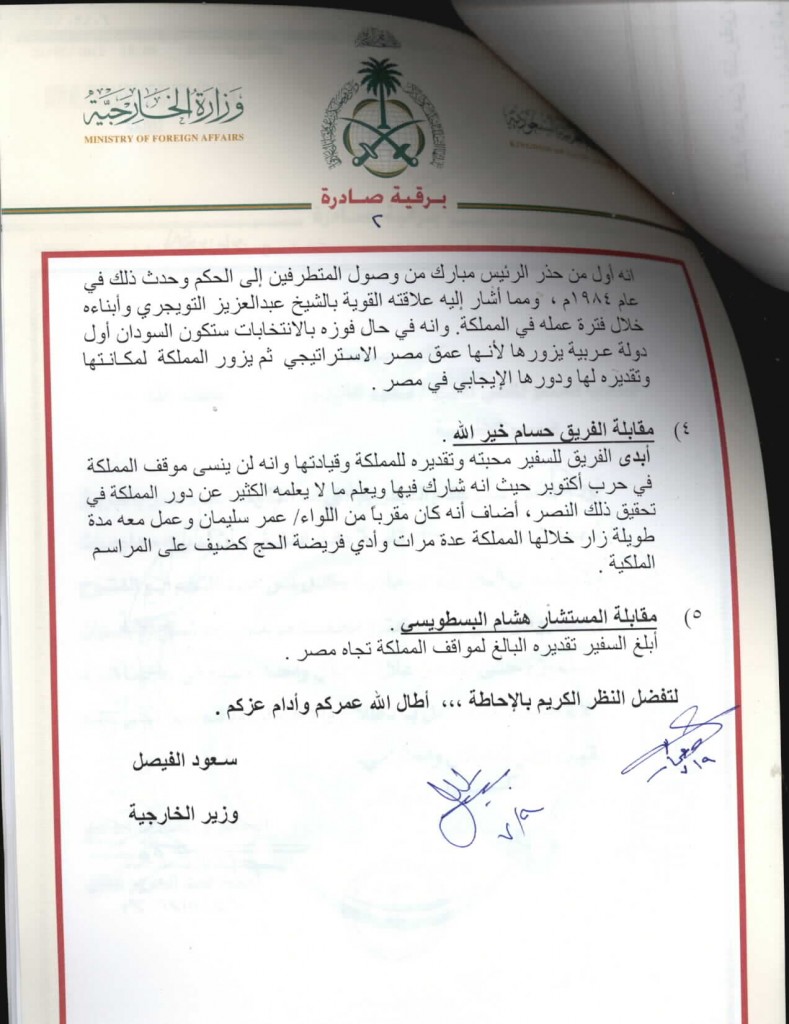 وزارة الخارجية
MINISTRY OF FOREIGN AFFAIRS
برقية صادرة
٢
انه أول من حذر الرئيس مبارك من وصول المتطرفين إلى الحكم وحدث ذلك في
عام ١٩٨٤م ، ومما أشار إليه علاقته القوية بالشيخ عبدالعزيز التويجري وأبناءه
خلال فترة عمله في المملكة. وانه في حال فوزه بالانتخابات ستكون السودان أول
دولة عربية يزورها لأنها عمق مصر الاستراتيجي ثم يزور المملكة لمكانتها
وتقديره لها ودورها الإيجابي في مصر .
٤) مقابلة الفريق حسام خير الله .
أبدى الفريق للسفير محبته وتقديره للمملكة وقيادتها وانه لن ينسى موقف المملكة
في حرب أكتوبر حيث انه شارك فيها ويعلم ما لا يعلمه الكثير عن دور المملكة في
تحقيق ذلك النصر، أضاف أنه كان مقرباً من اللواء/ عمر سليمان وعمل معه مدة
طويلة زار خلالها المملكة عدة مرات وأدي فريضة الحج كضيف على المراسم
الملكية .
٥) مقابلة المستشار هشام البسطويسي .
أبلغ السفير تقديره البالغ لمواقف المملكة تجاه مصر .
لتفضل النظر الكريم بالإحاطة ،،، أطال الله عمركم وأدام عزكم .
سعود الفيصل
وزير الخارجية
٧/٩
٧/٩